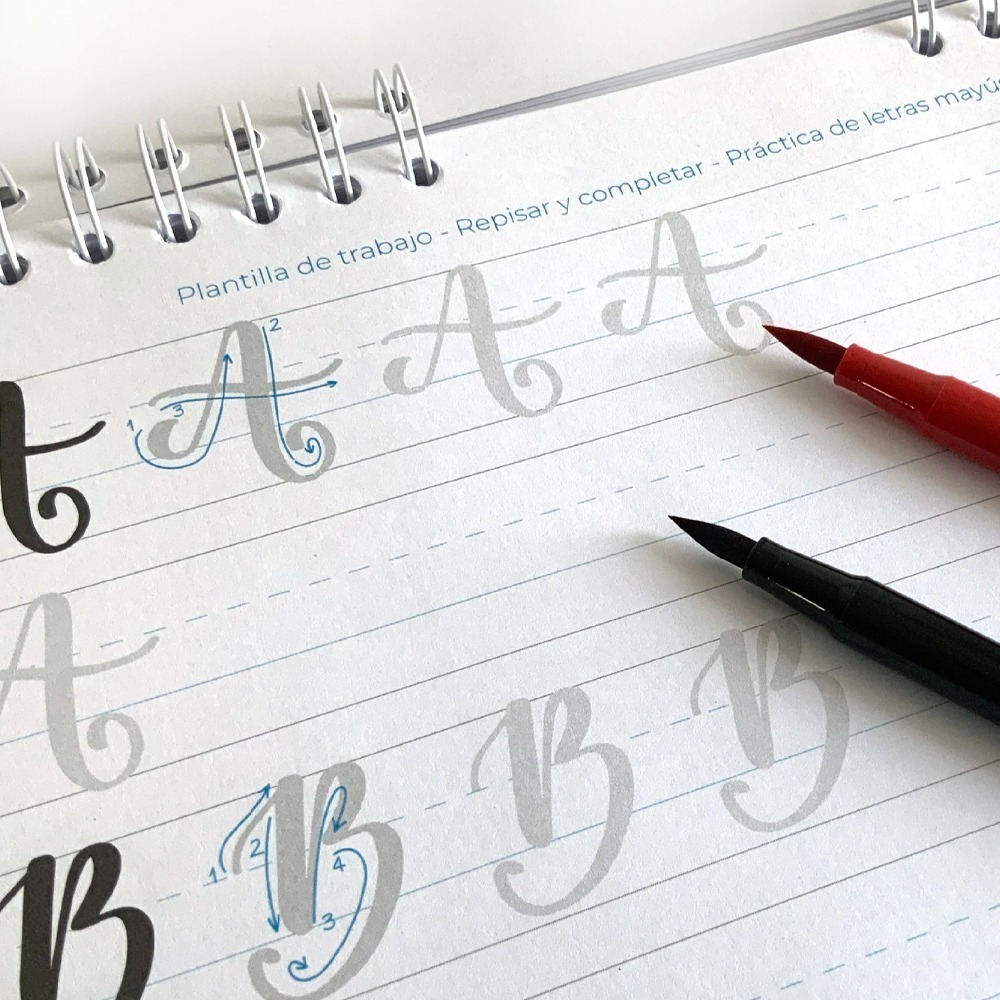 Plantilla de trabajo - Repisar y completar - Práctica de letras
A 1 2 3 A A A
A
B 1 2 3 4 B B B